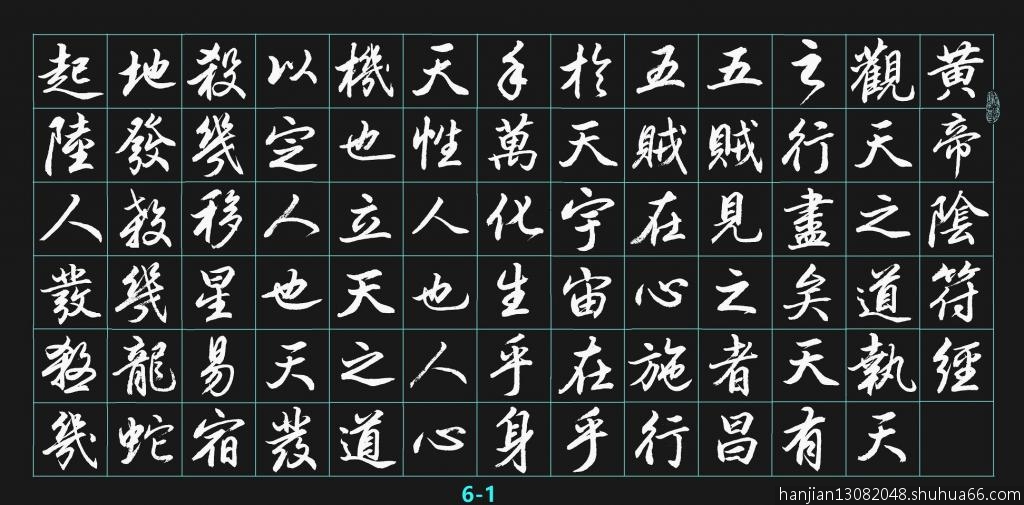 黄帝陰符經
觀天之道執天
之行盡矣天有
五賊見之者昌
五賊在心施行
於天宇宙在乎
手萬化生乎身
天性人也人心
機也立天之道
以定人也天發
殺幾移星易宿
地發殺幾龍蛇
起陸人發殺幾
6-1
hanjian13082048.shuhua66.com